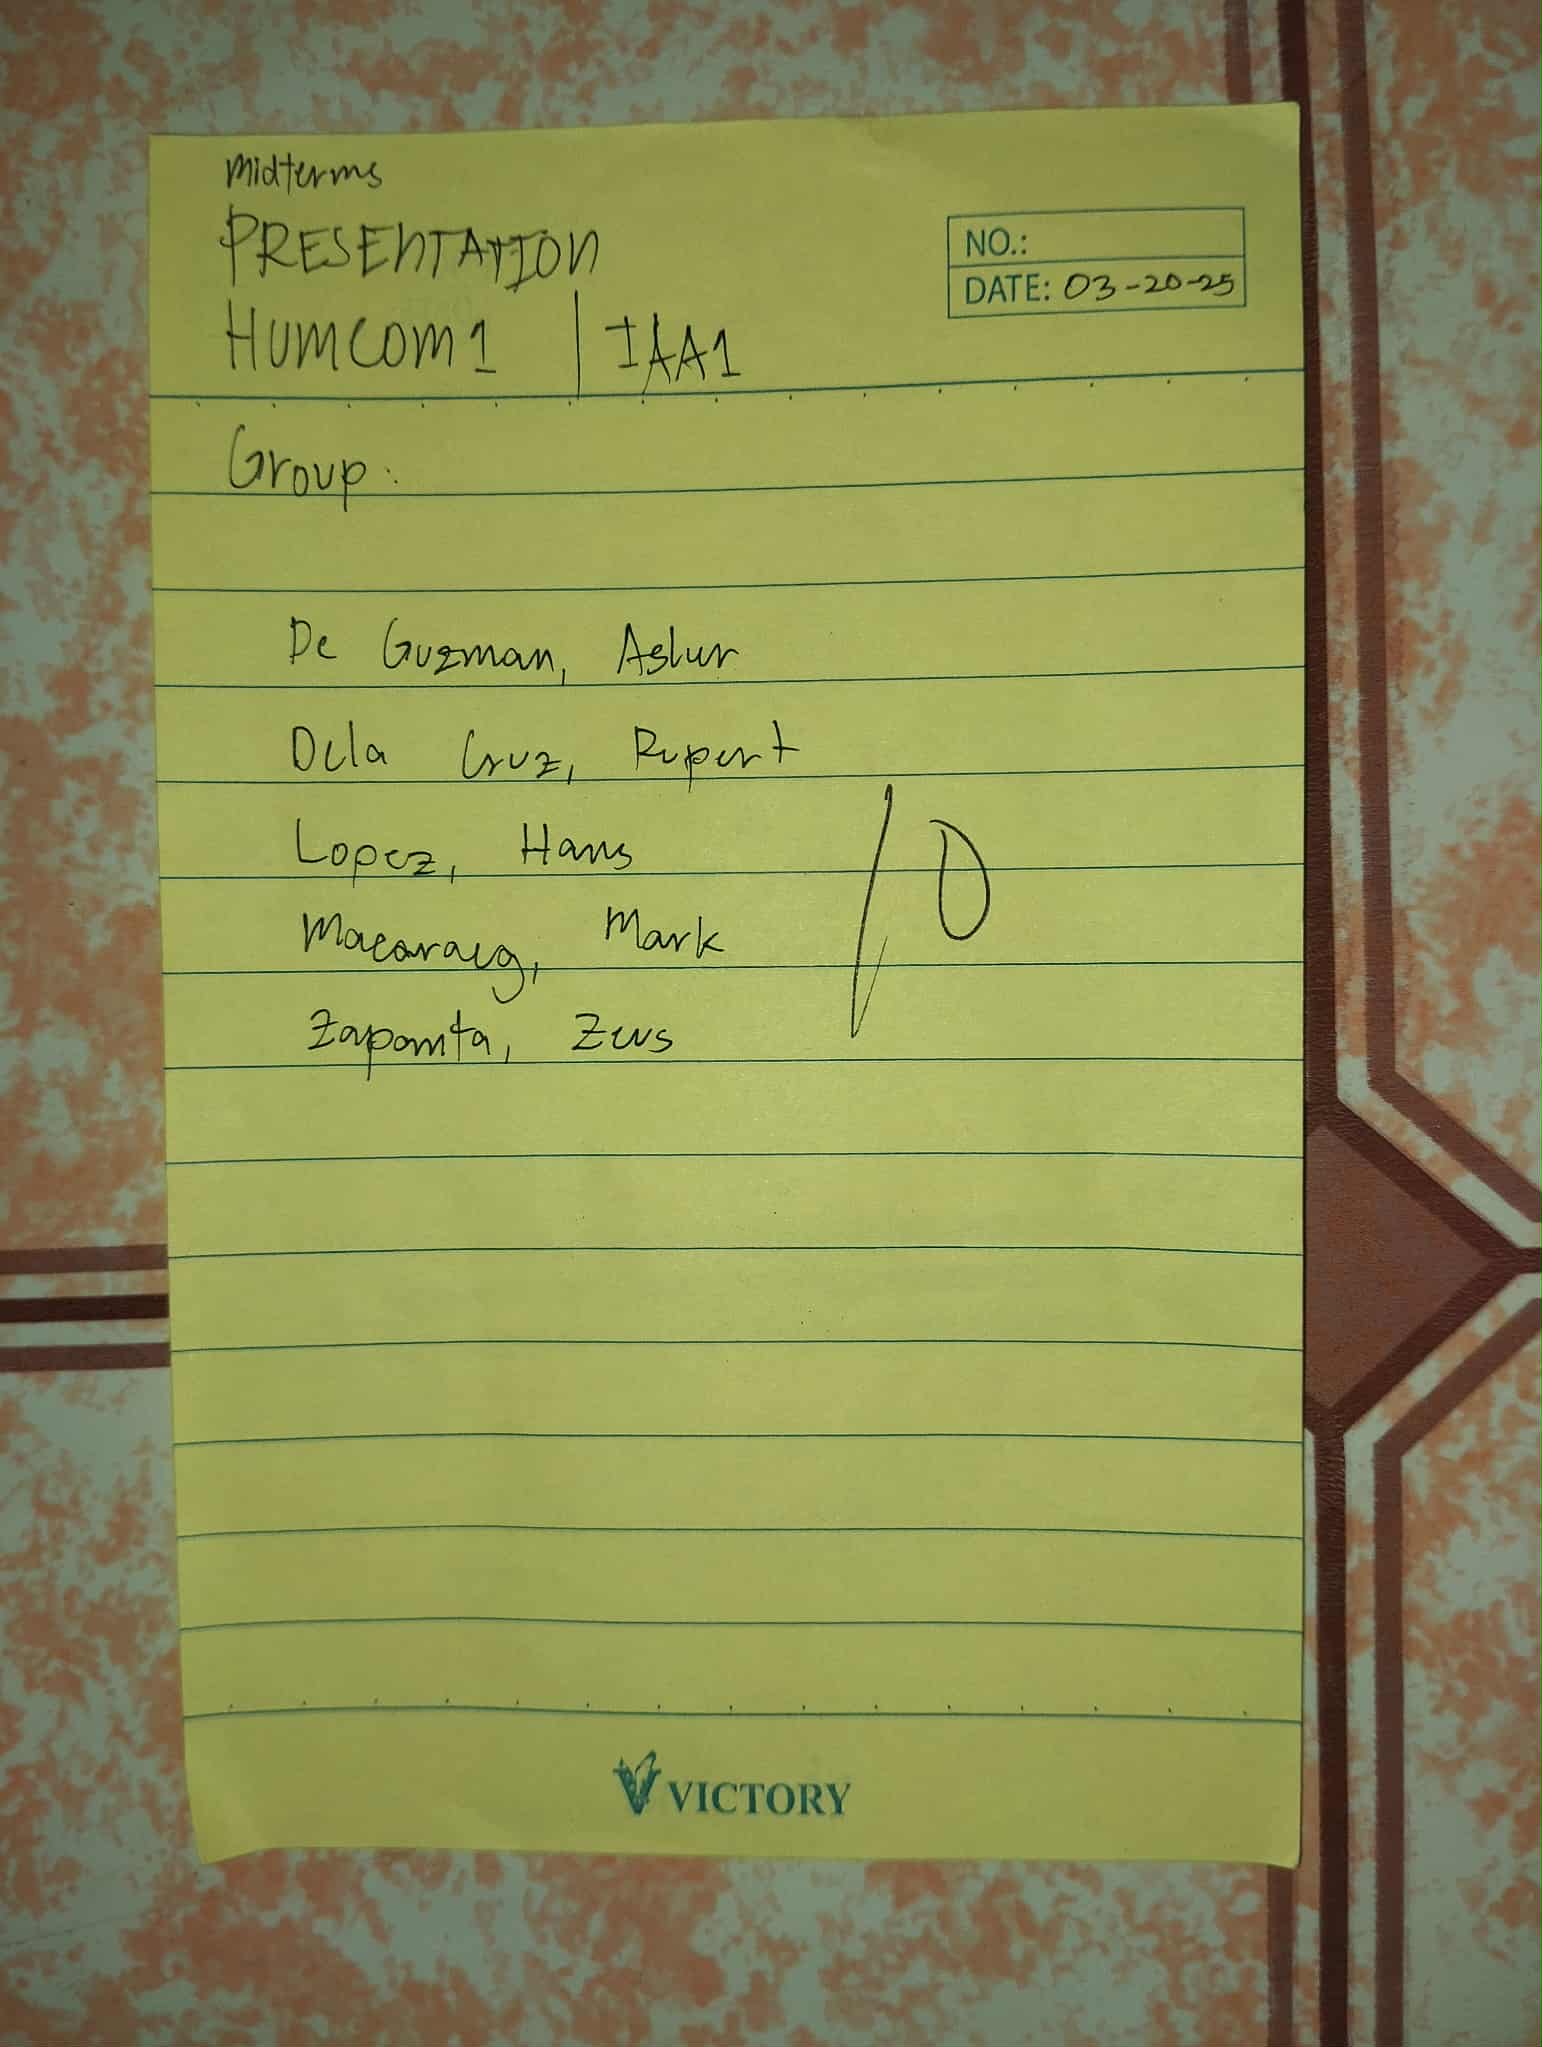 Midterms
PRESENTATION
HUMCOM1 | IAA1
NO.:
DATE: 03-20-25
Group:
De Guzman, Aslur
Dela Cruz, Rupert
Lopez, Hans
Macaraeg, Mark
10
Zapanta, Zeus
VICTORY